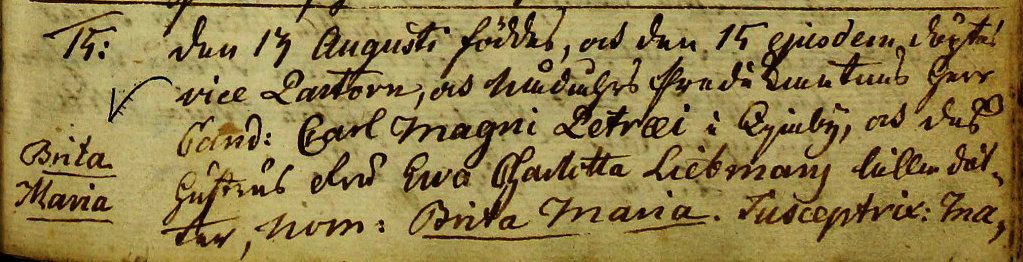 15: den 13 Augusti föddes, och den 15 ejusdem döptes
vice Pastorn, och Predikantens Herr
Cand: Carl Magni Petræi i Qvinby, och des
Brita hustrus Fru Ewa Charlotta Liebmans lilla dåt-
Maria ter, Nom: Brita Maria. Susceptrix: Ma,